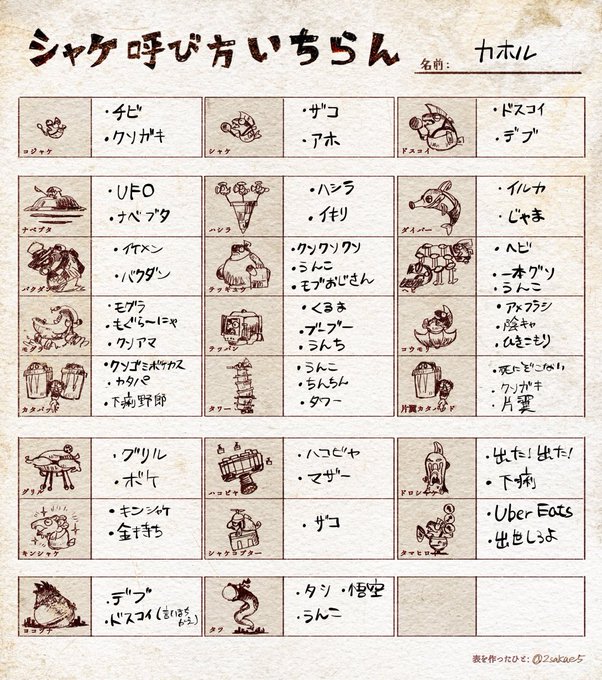 シャケ呼び方いちらん
名前: カホル
コジャケ
・チビ
・クソガキ
シャケ
・ザコ
・アホ
ドスコイ
・ドスコイ
・デブ
ナベブタ
・UFO
・ナベブタ
ハシラ
・ハシラ
・イキリ
ダイバー
・イルカ
・じゃま
バクダン
・イケメン
・バクダン
テッキュウ
・クソクソクソ
・うんこ
・モブおじさん
ヘビ
・ヘビ
・一本グソ
・うんこ
モグラ
・モグラ
・もぐら〜にゃ
・クソアマ
テッパン
・くるま
・ブーブー
・うんち
コウモリ
・アメフラシ
・陰キャ
・ひきこもり
カタパッド
・クソゴミボケカス
・カタパ
・下痢野郎
タワー
・うんこ
・ちんちん
・タワー
片翼カタパッド
・死にぞこない
・クソガキ
・片翼
グリル
・グリル
・ボケ
ハコビヤ
・ハコビヤ
・マザー
ドロシャケ
・出た!出た!
・下痢
キンシャケ
・キンシャケ
・金持ち
シャケコプター
・ザコ
タマヒロイ
・Uber Eats
・出世しろよ
ヨコヅナ
・デブ
・ドスコイ(言いまちがえ)
タツ
・タツ ・悟空
・うんこ
表を作ったひと: @2sakae5